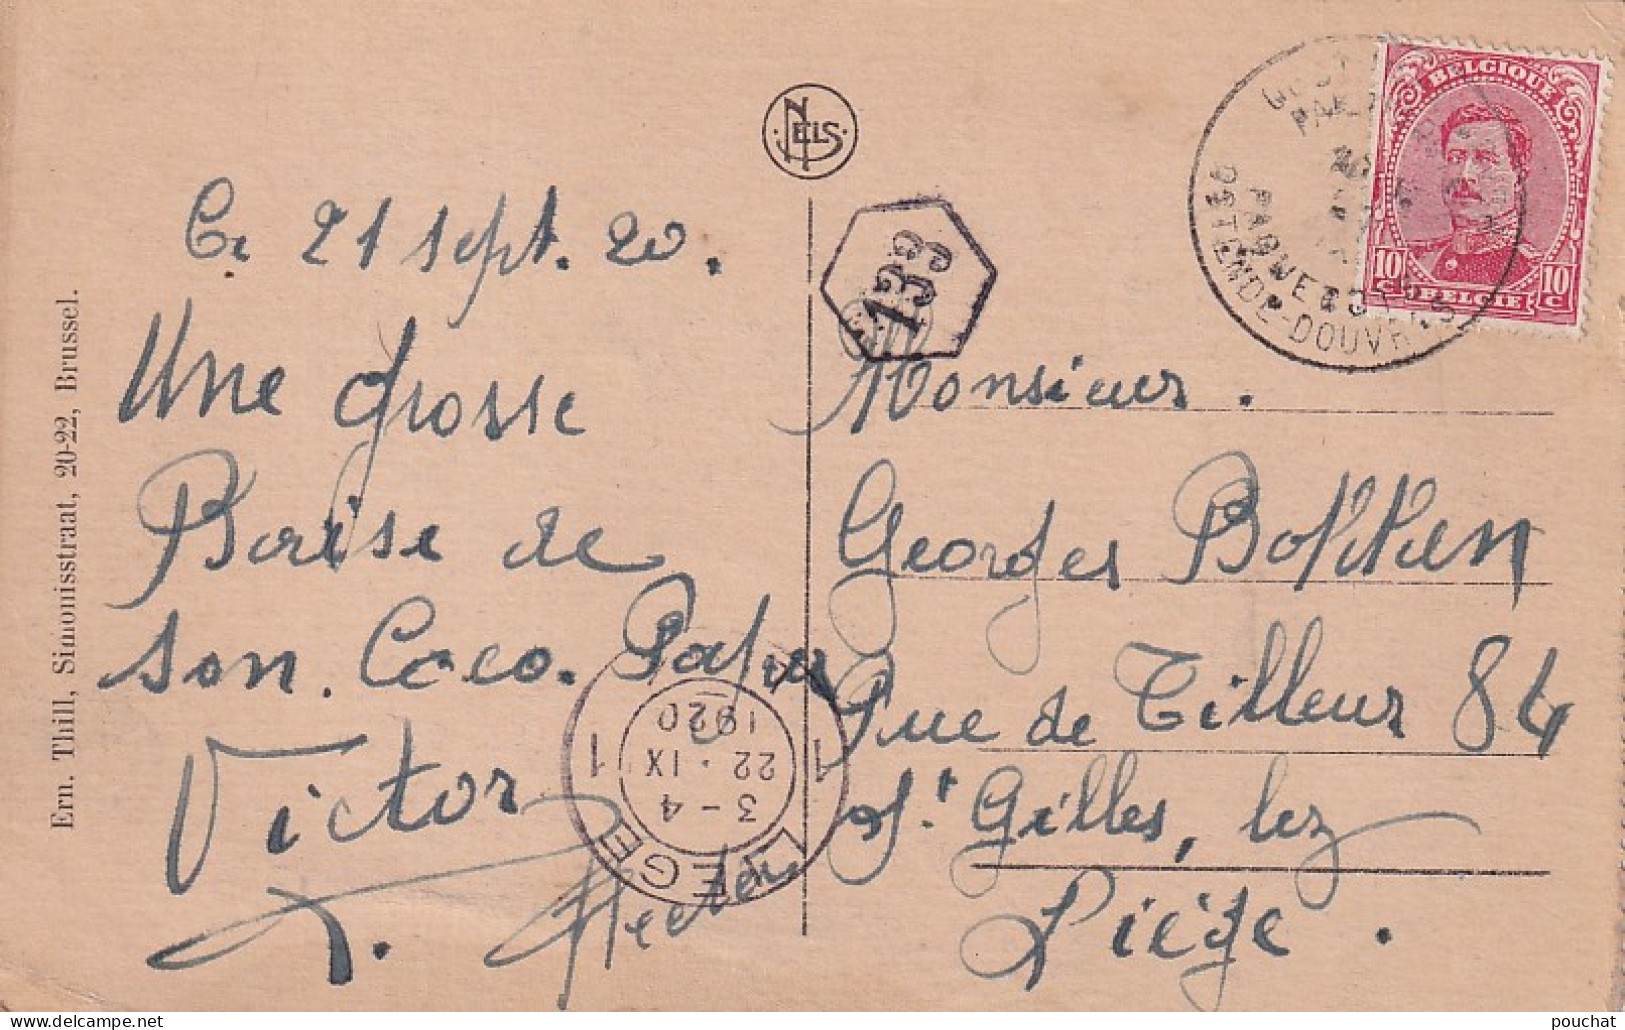 Ern. Thill, Simonisstraat, 20-22, Brussel.
NELS
Ce 21 sept. 20.
Une grosse
Baise de
son. Coco. Papa
Victor
133
Monsieur.
Georges Bokken
Rue de Tilleur 84
St Gilles, lez
Liége.
BELGIQUE
10 10
C C
BELGIË
OSTENDE-DOUVRES
PAQWEBOT
LIEGE
1 1
3-4
22.IX
1920
pouchat